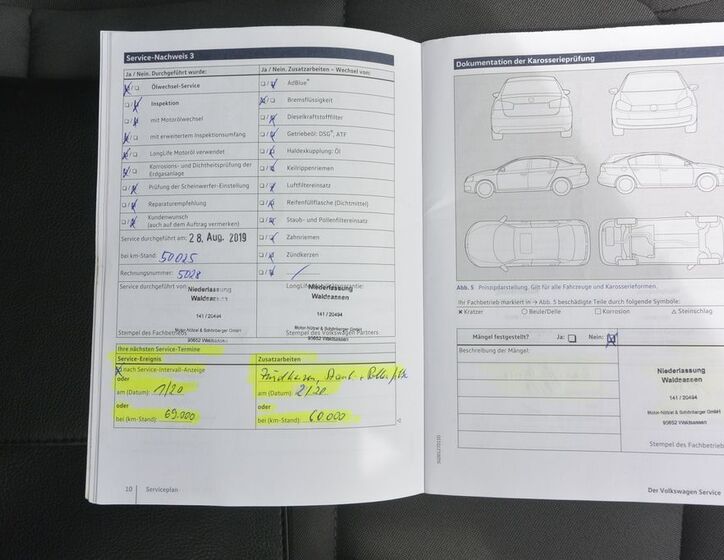 Service-Nachweis 3
Ja / Nein. Durchgeführt wurde:
Ölwechsel-Service
Inspektion
mit Motorölwechsel
mit erweitertem Inspektionsumfang
LongLife Motoröl verwendet
Korrosions- und Dichtheitsprüfung der
Erdgasanlage
Prüfung der Scheinwerfer-Einstellung
Reparaturempfehlung
Kundenwunsch
(auch auf dem Auftrag vermerken)
Service durchgeführt am: 28. Aug. 2019
bei km-Stand: 50025
Rechnungsnummer: 5028
Service durchgeführt von:
Niederlassung
Waldsassen
141 / 20494
Motor-Nützel & Schönberger GmbH
95652 Waldsassen
Stempel des Fachbetriebs
Ja / Nein. Zusatzarbeiten – Wechsel von:
AdBlue®
Bremsflüssigkeit
Dieselkraftstofffilter
Getriebeöl: DSG®, ATF
Haldexkupplung: Öl
Keilrippenriemen
Luftfiltereinsatz
Reifenfüllflasche (Dichtmittel)
Staub- und Pollenfiltereinsatz
Zahnriemen
Zündkerzen
Niederlassung
Waldsassen
141 / 20494
Motor-Nützel & Schönberger GmbH
95652 Waldsassen
Stempel des Volkswagen Partners
Ihre nächsten Service-Termine
Service-Ereignis
nach Service-Intervall-Anzeige
oder
am (Datum): 1/20
oder
bei (km-Stand):
Zusatzarbeiten
Zündkerzen, Staub
am (Datum): 2/20
oder
bei (km-Stand): 60.000
10 Serviceplan
Dokumentation der Karosserieprüfung
Abb. 5 Prinzipdarstellung. Gilt für alle Fahrzeuge und Karosserieformen.
Ihr Fachbetrieb markiert in → Abb. 5 beschädigte Teile durch folgende Symbole:
× Kratzer ○ Beule/Delle □ Korrosion △ Steinschlag
Mängel festgestellt? Ja: Nein:
Beschreibung der Mängel:
Niederlassung
Waldsassen
141 / 20494
Motor-Nützel & Schönberger GmbH
95652 Waldsassen
Stempel des Fachbetriebs
Der Volkswagen Service